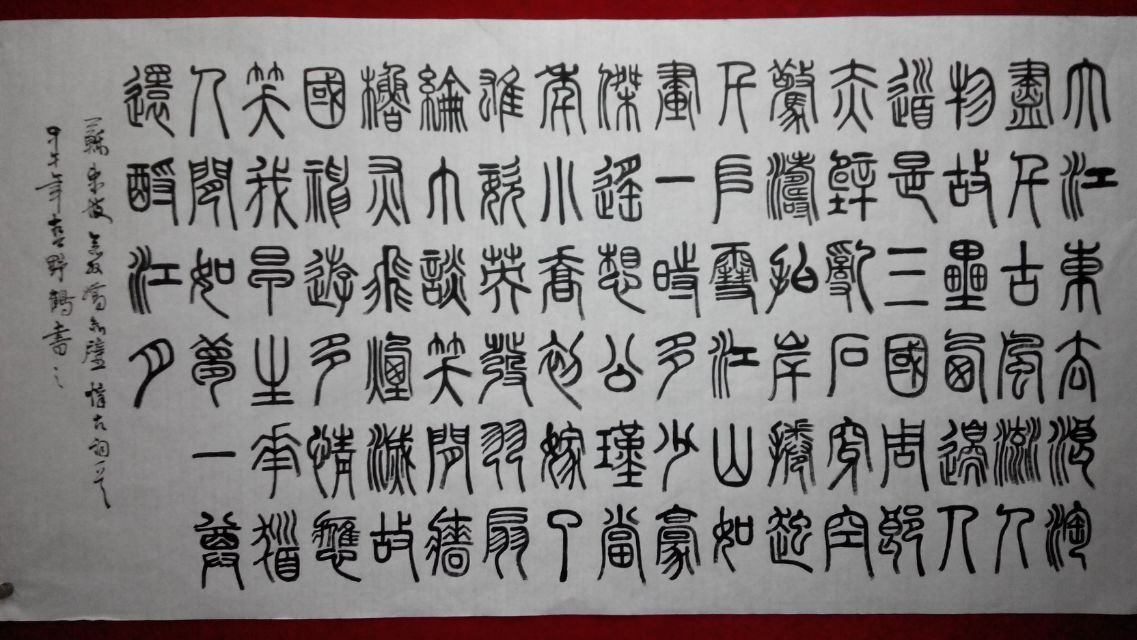 大江東去浪淘
盡千古風流人
物故壘西邊人
道是三國周郎
赤壁亂石穿空
驚濤拍岸捲起
千堆雪江山如
畫一時多少豪
傑遙想公瑾當
年小喬初嫁了
雄姿英發羽扇
綸巾談笑間牆
櫓灰飛煙滅故
國神遊多情應
笑我早生華髮
人間如夢一尊
還酹江月
蘇東坡念奴嬌赤壁懷古詞一首
甲午年喜野鶴書之